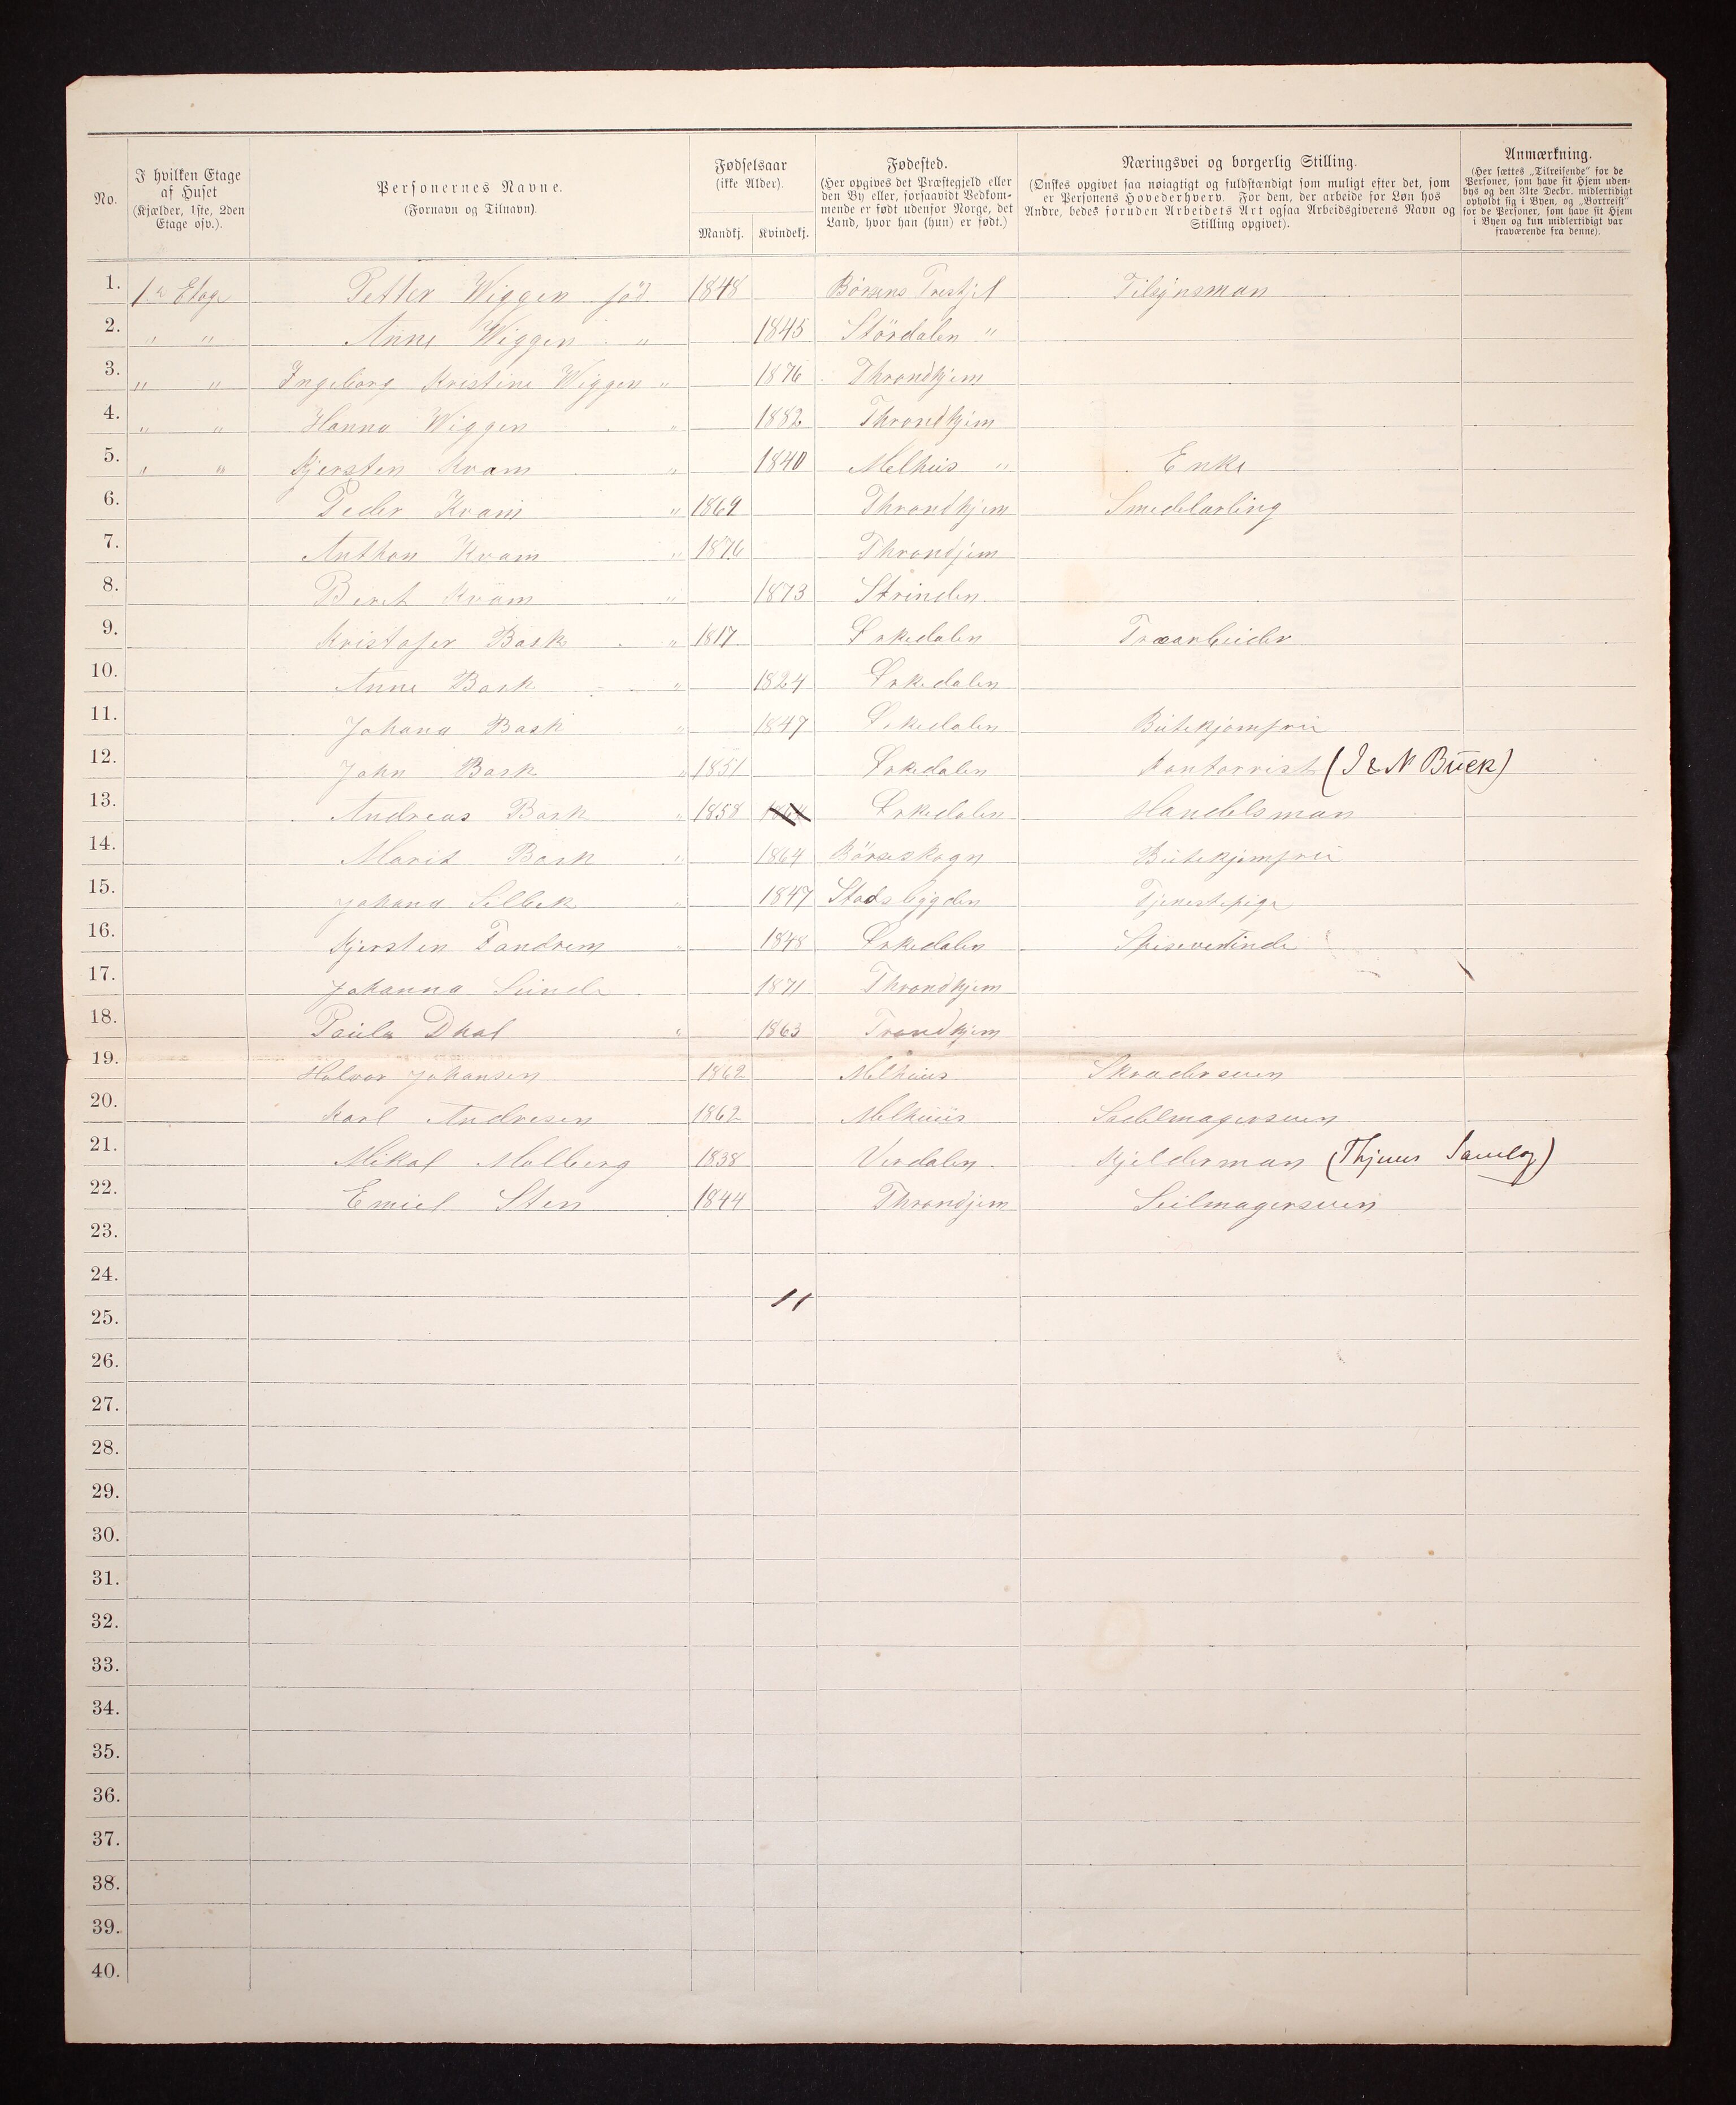 No.
I hvilken Etage af Huset (Kjælder, 1ste, 2den Etage osv.).
Personernes Navne. (Fornavn og Tilnavn).
Fødselsaar (ikke Alder).
Mandkj. Kvindekj.
Fødested. (Her opgives det Præstegjeld eller den By eller, forsaavidt Vedkommende er født udenfor Norge, det Land, hvor han (hun) er født.)
Næringsvei og borgerlig Stilling. (Ønskes opgivet saa nøiagtigt og fuldstændigt som muligt efter det, som er Personens Hovederhverv. For dem, der arbeide for Løn hos Andre, bedes foruden Arbeidets Art ogsaa Arbeidsgiverens Navn og Stilling opgivet).
Anmærkning. (Her sættes „Tilreisende" for de Personer, som have sit Hjem udenbys og den 31te Decbr. midlertidigt opholdt sig i Byen, og „Bortreist" for de Personer, som have sit Hjem i Byen og kun midlertidigt var fraværende fra denne).
1. 1ste Etage Petter Wiggen föd 1848 Börsens Prestjel Tilsynsman
2. " " Anne Wiggen " 1845 Stördalen "
3. " " Ingeborg Kristine Wiggen " 1876 Throndhjem
4. " " Hanna Wiggen " 1882 Throndhjem
5. " " Kjersten Kvam " 1840 Melhus " Enke
6. Peder Kvam " 1869 Throndhjem Smedelærling
7. Anthon Kvam " 1876 Throndjem
8. Beret Kvam " 1873 Strinden
9. Kristofer Bask " 1817 Örkedalen Træarbeider
10. Anne Bask " 1824 Örkedalen
11. Johana Bask " 1847 Örkedalen Butekjomfru
12. John Bask " 1851 Örkedalen Kontorrist (I & N Buck)
13. Andreas Bask " 1858 1864 Örkedalen Handelsman
14. Marit Bask " 1864 Börseskogn Butekjomfru
15. Johana Selbek " 1847 Stadsbygden Tjenestepige
16. Kjersten Fandrem " 1848 Örkedalen Spiseverdinde
17. Johanna Sunde 1871 Throndhjem
18. Paula Dhal " 1863 Trondhjem
19. Halvor Johansen 1862 Melhuus Skradersven
20. Karl Andresen 1862 Melhuus Sadelmagersven
21. Mikal Molberg 1838 Verdalen Kjelderman (Thjems Samlag)
22. Emiel Sten 1844 Throndjem Seilmagersven
23.
24.
11
25.
26.
27.
28.
29.
30.
31.
32.
33.
34.
35.
36.
37.
38.
39.
40.